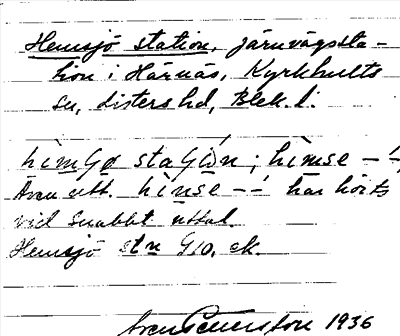 Hemsjö station, järnvägssta-
tion i Härnäs, Kyrkhults
sn, Listers hd, Blek. l.
himʃø staʃiòn; himse –´–,
Även utt. hinse –´– har hörts
vid snabbt uttal.
Hemsjö stn GEO. ek.
Sven Petersson 1936